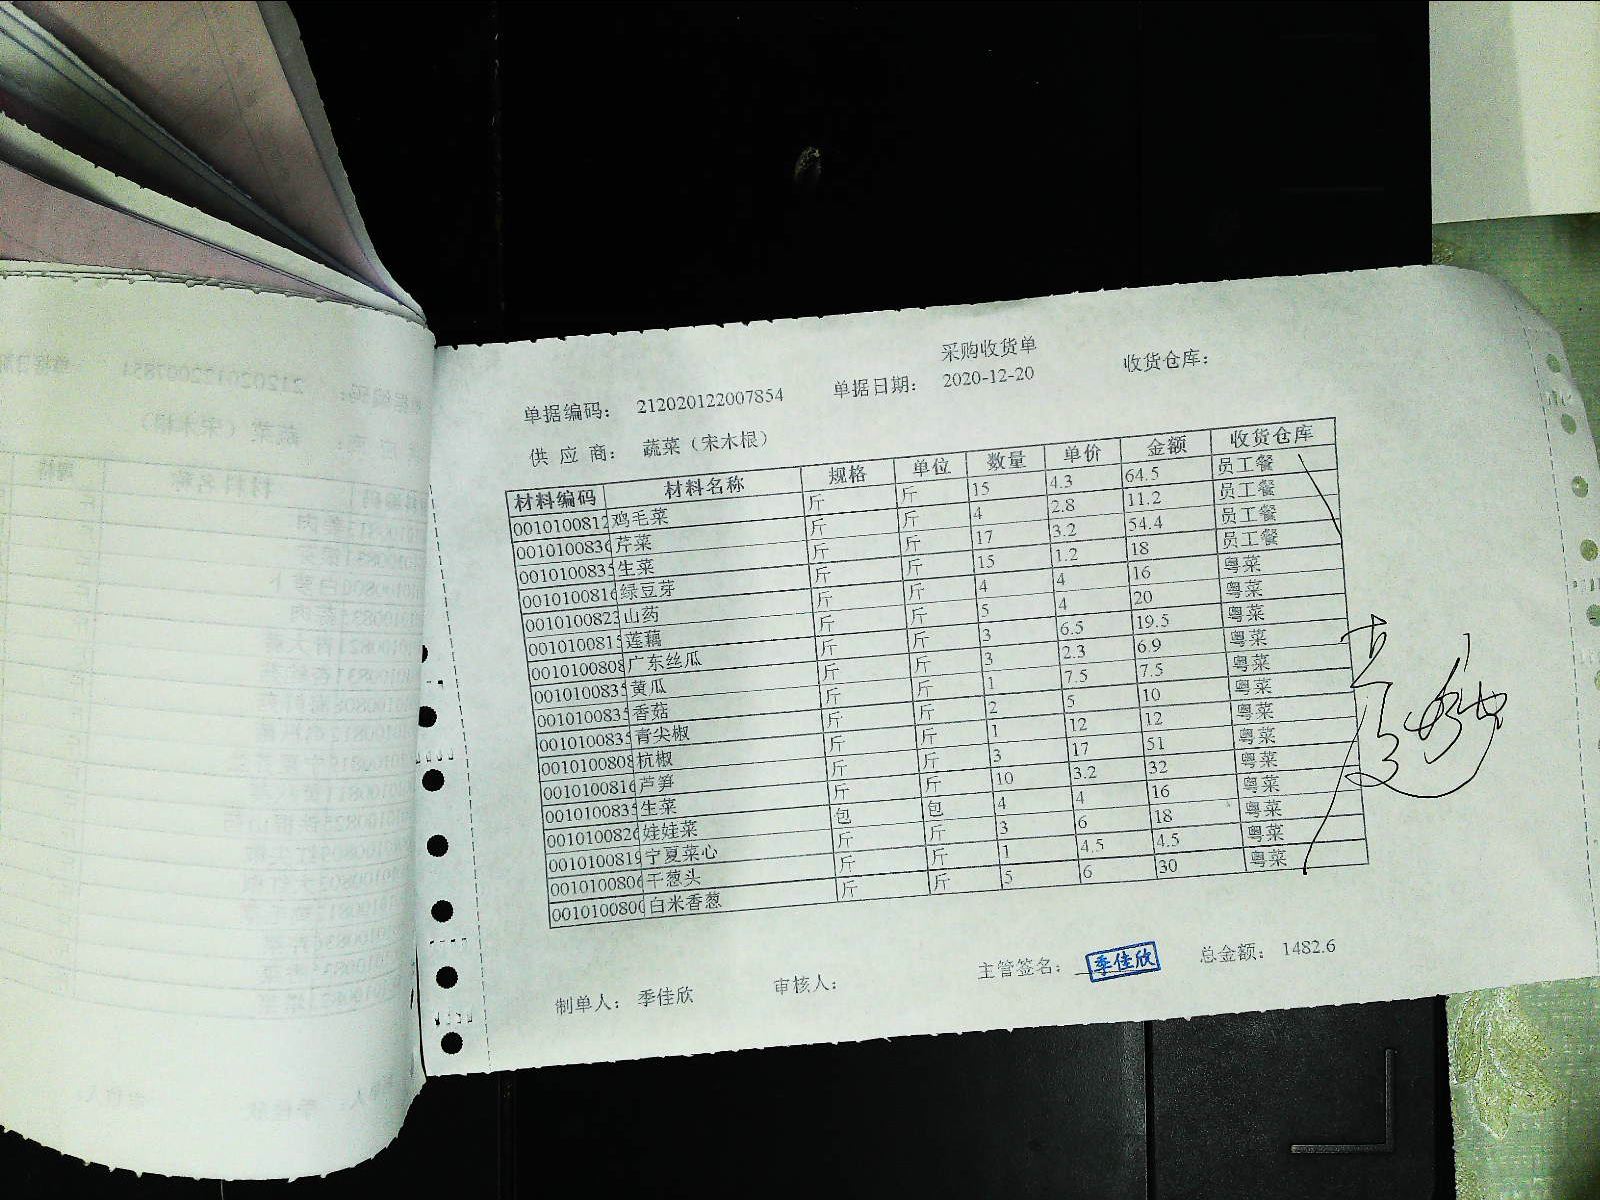 采购收货单
单据编码： 212020122007854 单据日期： 2020-12-20 收货仓库：
供 应 商： 蔬菜（宋木根）
材料编码 材料名称 规格 单位 数量 单价 金额 收货仓库
0010100812 鸡毛菜 斤 斤 15 4.3 64.5 员工餐
0010100836 芹菜 斤 斤 4 2.8 11.2 员工餐
0010100835 生菜 斤 斤 17 3.2 54.4 员工餐
0010100816 绿豆芽 斤 斤 15 1.2 18 员工餐
0010100823 山药 斤 斤 4 4 16 粤菜
0010100815 莲藕 斤 斤 5 4 20 粤菜
0010100808 广东丝瓜 斤 斤 3 6.5 19.5 粤菜
0010100835 黄瓜 斤 斤 3 2.3 6.9 粤菜
0010100835 香菇 斤 斤 1 7.5 7.5 粤菜
0010100835 青尖椒 斤 斤 2 5 10 粤菜
0010100808 杭椒 斤 斤 1 12 12 粤菜
0010100816 芦笋 斤 斤 3 17 51 粤菜
0010100835 生菜 斤 斤 10 3.2 32 粤菜
0010100826 娃娃菜 包 包 4 4 16 粤菜
0010100819 宁夏菜心 斤 斤 3 6 18 粤菜
0010100806 干葱头 斤 斤 1 4.5 4.5 粤菜
0010100800 白米香葱 斤 斤 5 6 30 粤菜
制单人： 季佳欣 审核人： 主管签名： 季佳欣 总金额： 1482.6